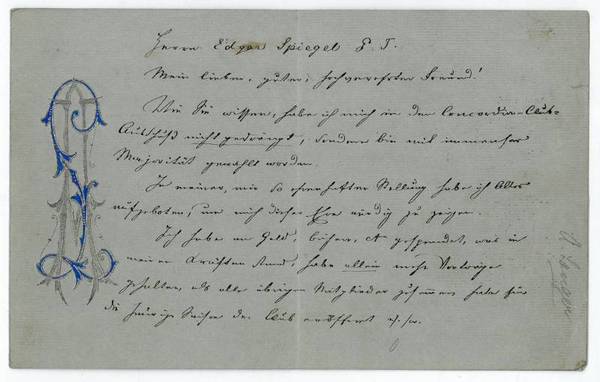 Herrn Edgar Spiegel P. T.
Mein lieber, guter, hochverehrter Freund!
Wie Sie wissen, habe ich mich in den Concordia-Club-
Ausschuß nicht gedrängt, sondern bin mit immenser
Majorität gewählt worden.
In meiner, mir so ehrenhaften Stellung habe ich Alles
aufgeboten, um mich dieser Ehre würdig zu zeigen.
Ich habe an Geld, Bücher, gespendet, was in
meinen Kräften stand, habe allein mehr Vorträge
gehalten, als alle übrigen Mitglieder zusammen, habe für
die heurige Saison den Club eröffnet